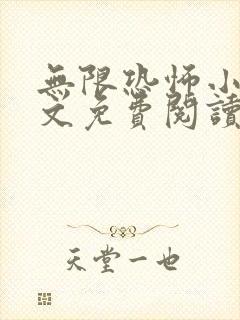 無限恐怖小
文免費閱讀
天堂一也